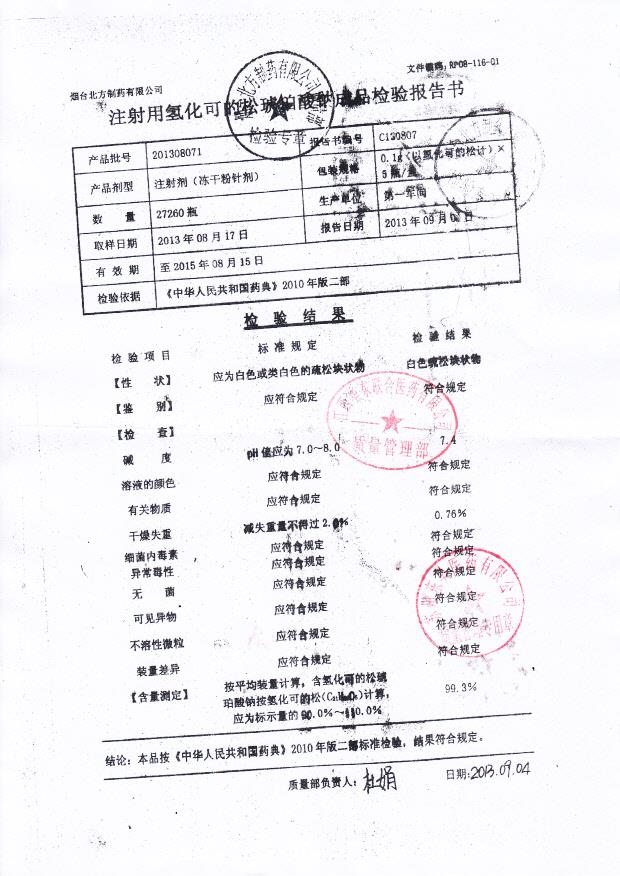 烟台北方制药有限公司
文件编码：RP08-116-01
注射用氢化可的松琥珀酸钠成品检验报告书
北方制药有限公司
检验专章
产品批号 201308071 报告书编号 C130807
产品剂型 注射剂（冻干粉针剂） 包装规格 0.1g（以氢化可的松计）×5瓶/盒
数 量 27260瓶 生产单位 第一车间
取样日期 2013年08月17日 报告日期 2013年09月0 日
有 效 期 至2015年08月15日
检验依据 《中华人民共和国药典》2010年版二部
检 验 结 果
检 验 项 目 标 准 规 定 检 验 结 果
【性 状】 应为白色或类白色的疏松块状物 白色疏松块状物
【鉴 别】 应符合规定 符合规定
【检 查】
碱 度 pH值应为7.0～8.0 7.4
溶液的颜色 应符合规定 符合规定
有关物质 应符合规定 符合规定
干燥失重 减失重量不得过2.0% 0.76%
细菌内毒素 应符合规定 符合规定
异常毒性 应符合规定 符合规定
无 菌 应符合规定 符合规定
可见异物 应符合规定 符合规定
不溶性微粒 应符合规定 符合规定
装量差异 应符合规定 符合规定
【含量测定】 按平均装量计算，含氢化可的松琥 99.3%
珀酸钠按氢化可的松(C₂₁H₃₀O₅)计算，
应为标示量的90.0%～110.0%
医药有限公司
质量管理部
医药有限公司
结论：本品按《中华人民共和国药典》2010年版二部标准检验，结果符合规定。
质量部负责人：杜娟 日期：2013.09.04